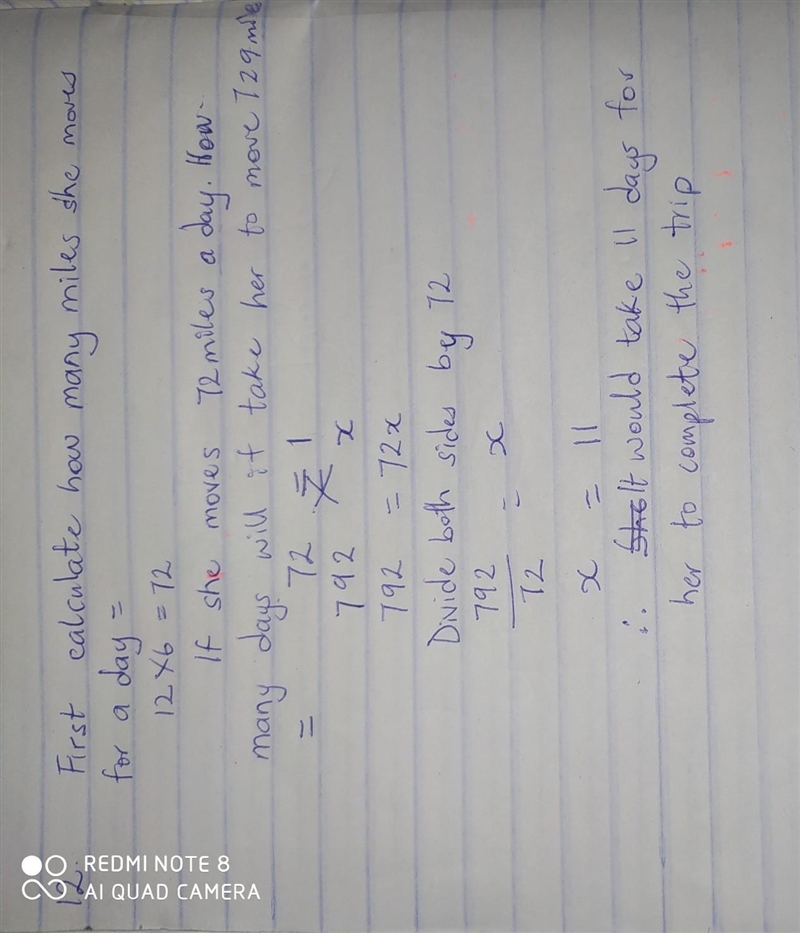 12.
First calculate how many miles she moves
for a day =
12 × 6 = 72
If she moves 72 miles a day. How
many days will it take her to move 729 mile
= 72 = 1
792 x
792 = 72x
Divide both sides by 72
792 = x
72
x = 11
∴ She It would take 11 days for
her to complete the trip
REDMI NOTE 8
AI QUAD CAMERA